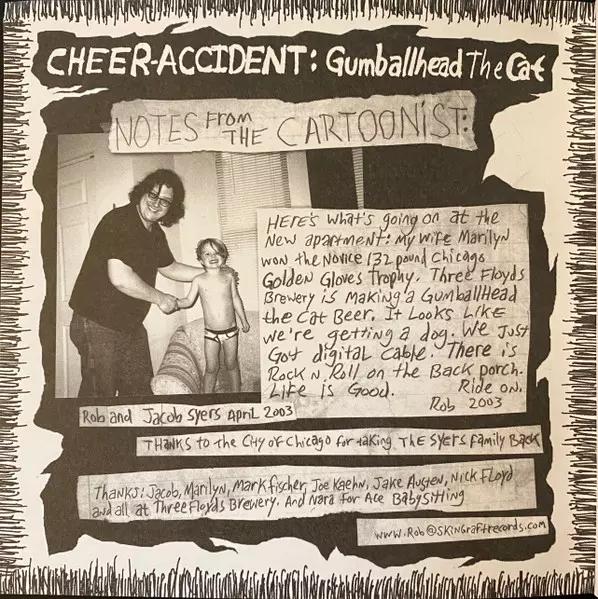 CHEER-ACCIDENT: Gumballhead The Cat
NOTES FROM THE CARTOONIST:
HERE'S what's going on at the
New apartment: my wife Marilyn
won the Novice 132 pound Chicago
Golden Gloves Trophy. Three Floyds
Brewery is Making a GumballHead
the Cat Beer. It Looks Like
we're getting a dog. We Just
Got digital Cable. There is
Rock n Roll on the Back porch.
Life is Good. Ride on.
Rob 2003
Rob and Jacob Syers April 2003
THANKS to the City of Chicago for taking The Syers Family Back
Thanks: Jacob, Marilyn, Mark Fischer, Joe Kaehn, Jake Austen, Nick Floyd
and all at Three Floyds Brewery. And Nara for Ace Babysitting
www.Rob@SKiNGraftrecords.com